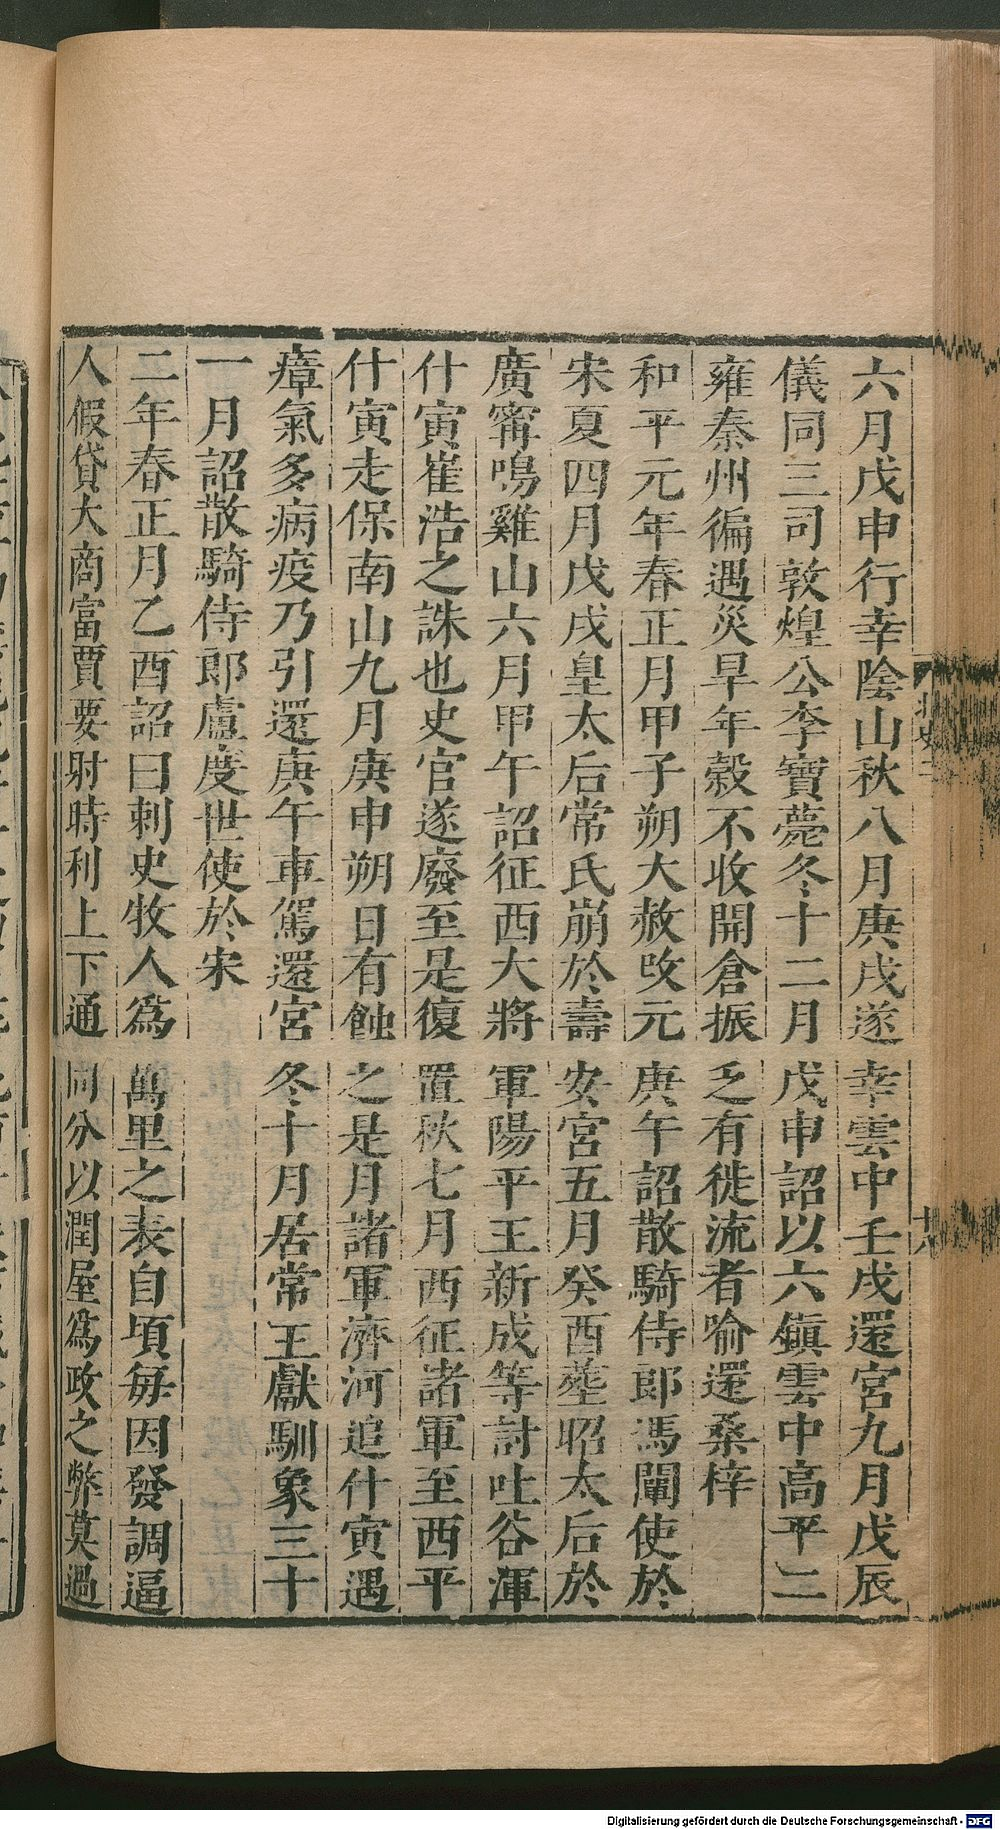 六月戊申行幸陰山秋八月庚戌遂幸雲中壬戌還宮九月戊辰
儀同三司敦煌公李寶薨冬十二月戊申詔以六鎮雲中高平二
雍秦州徧遇災旱年穀不收開倉振乏有徙流者喻還桑梓
和平元年春正月甲子朔大赦改元庚午詔散騎侍郎馮闡使於
宋夏四月戊戌皇太后常氏崩於壽安宮五月癸酉葬昭太后於
廣甯鳴雞山六月甲午詔征西大將軍陽平王新成等討吐谷渾
什寅崔浩之誅也史官遂廢至是復置秋七月西征諸軍至西平
什寅走保南山九月庚申朔日有蝕之是月諸軍濟河追什寅遇
瘴氣多病疫乃引還庚午車駕還宮冬十月居常王獻馴象三十
一月詔散騎侍郎盧度世使於宋
二年春正月乙酉詔曰刺史牧人為萬里之表自頃每因發調逼
人假貸大商富賈要射時利上下通同分以潤屋為政之弊莫過
Digitalisierung gefördert durch die Deutsche Forschungsgemeinschaft - DFG